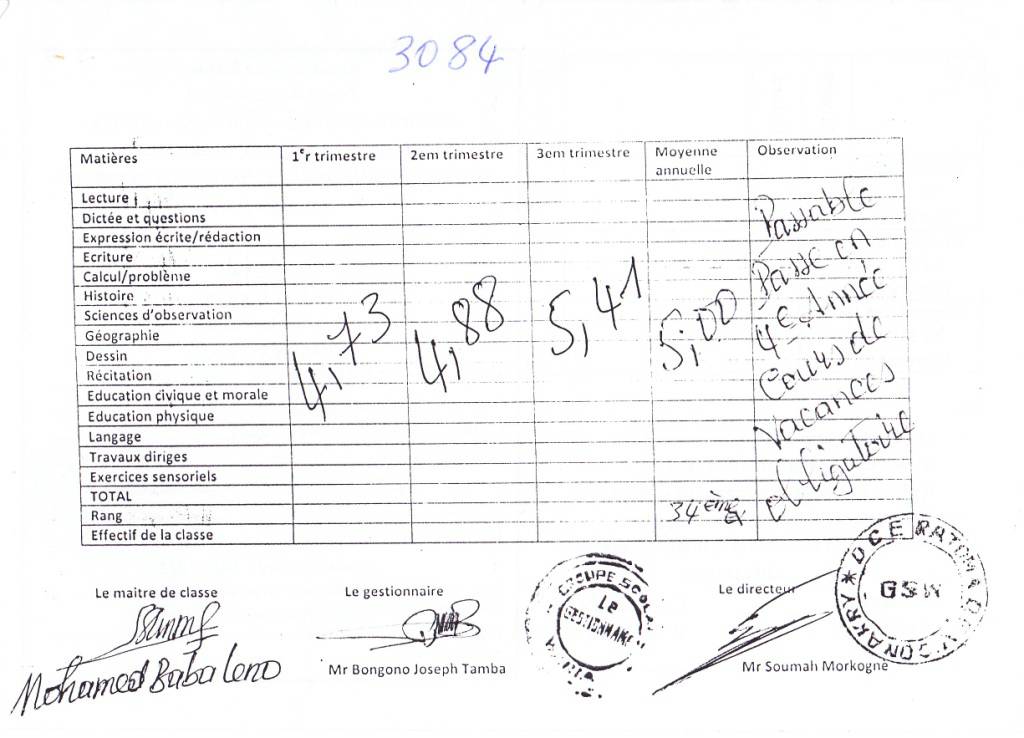 3084
Matières 1er trimestre 2em trimestre 3em trimestre Moyenne annuelle Observation
Lecture
Dictée et questions
Expression écrite/rédaction
Ecriture
Calcul/problème
Histoire
Sciences d'observation
Géographie
Dessin
Récitation
Education civique et morale
Education physique
Langage
Travaux diriges
Exercices sensoriels
TOTAL
Rang 34ème
Effectif de la classe
4,73 4,88 5,41 5,00
Passable
Passe en
4e Année
Cours de
Vacances
obligatoire
Le maitre de classe Le gestionnaire Le directeur
Mohamed Baba Leno
Mr Bongono Joseph Tamba Mr Soumah Morkogne
GROUPE SCOL
LE
GESTIONNAIRE
DCE RATOMA
CONAKRY
GSW